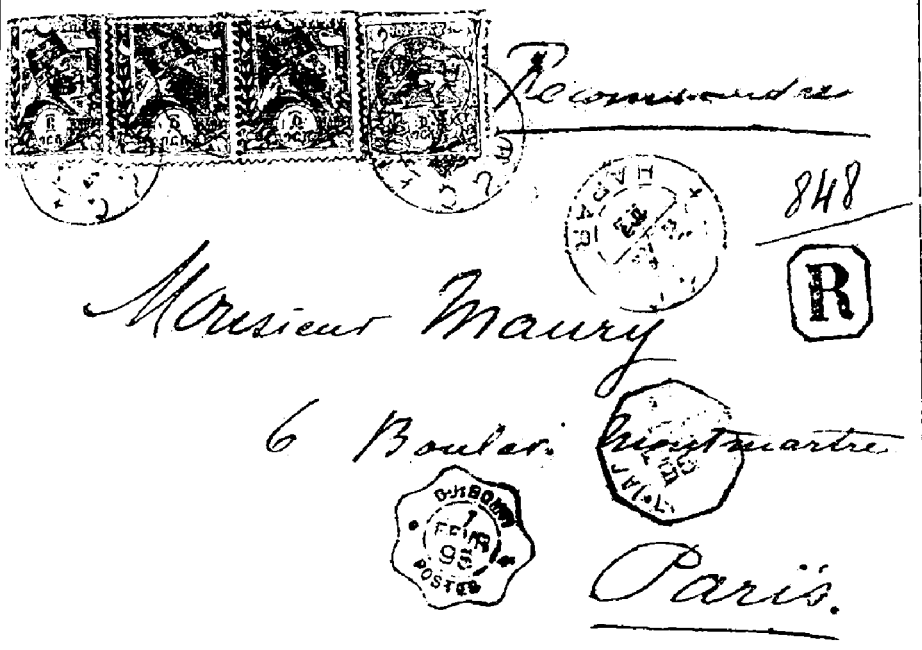 Recommandée
848
HARAR
R
Monsieur Maury
6 Boulev. Montmartre
DJIBOUTI
1
FEVR
95
POSTES
Paris.